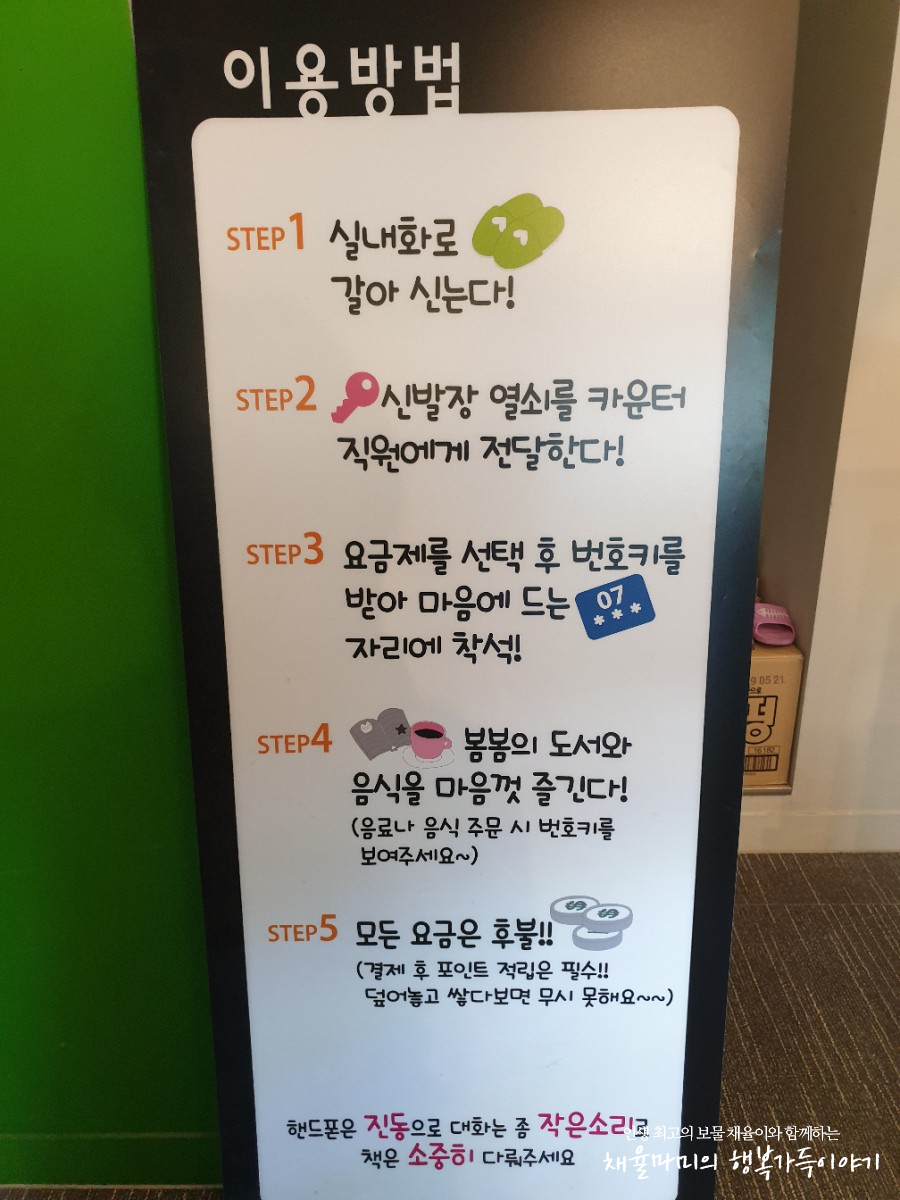 이용방법
STEP1 실내화로
갈아 신는다!
STEP2 신발장 열쇠를 카운터
직원에게 전달한다!
STEP3 요금제를 선택 후 번호키를
받아 마음에 드는 07
***
자리에 착석!
STEP4 봄봄의 도서와
음식을 마음껏 즐긴다!
(음료나 음식 주문 시 번호키를
보여주세요~)
STEP5 모든 요금은 후불!!
(결제 후 포인트 적립은 필수!!
덮어놓고 쌓다보면 무시 못해요~~)
핸드폰은 진동으로 대화는 좀 작은소리로
책은 소중히 다뤄주세요
인생 최고의 보물 채율이와 함께하는
채율마미의 행복가득이야기
9 05 21
16182